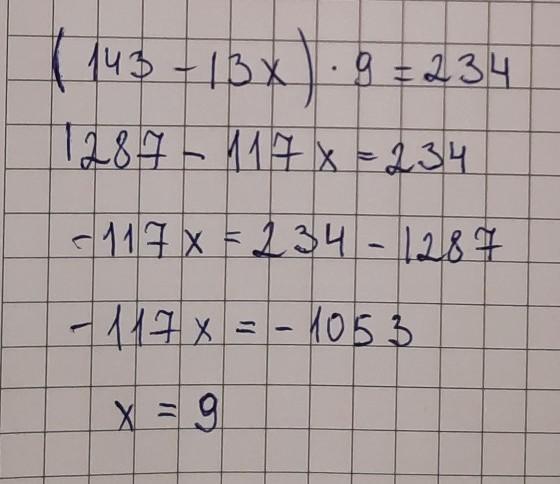 (143 - 13x) · 9 = 234
1287 - 117x = 234
-117x = 234 - 1287
-117x = -1053
x = 9